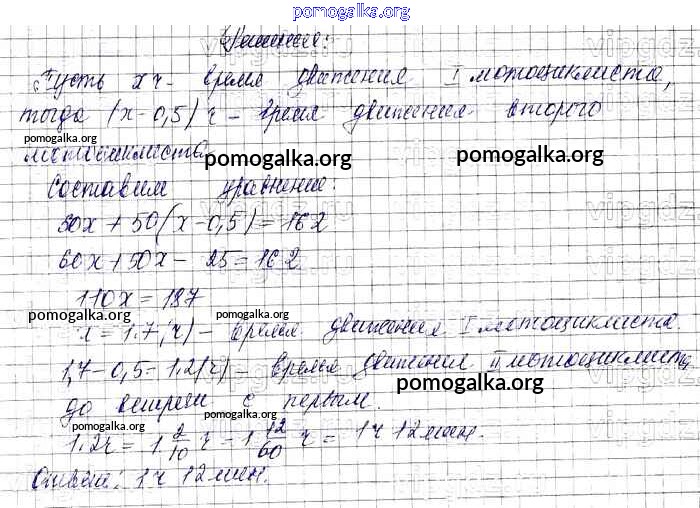 pomogalka.org
Решение:
Пусть x ч - время движения I мотоциклиста,
тогда (x-0,5) ч - время движения второго
pomogalka.org
мотоциклиста.
pomogalka.org
pomogalka.org
Составим уравнение:
60x + 50(x-0,5) = 162
60x + 50x - 25 = 162
110x = 187
pomogalka.org
pomogalka.org
x = 1,7 (ч) - время движения I мотоциклиста.
1,7-0,5=1,2(ч) - время движения II мотоциклиста
pomogalka.org
до встречи с первым.
pomogalka.org
1,2ч = 1 2/10 ч = 1 12/60 ч = 1ч 12мин.
Ответ: 1ч 12мин.